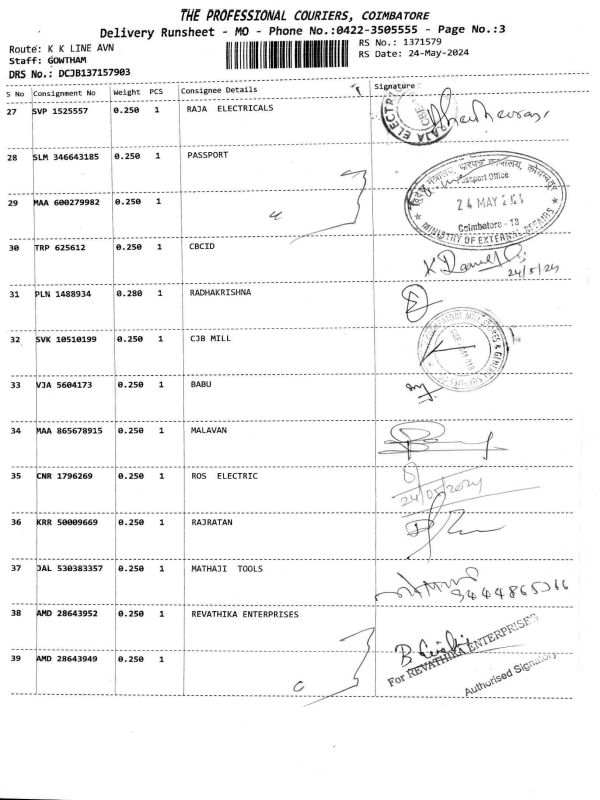 THE PROFESSIONAL COURIERS, COIMBATORE
Delivery Runsheet - MO - Phone No.:0422-3505555 - Page No.:3
Route: K K LINE AVN
RS No.: 1371579
Staff: GOWTHAM
RS Date: 24-May-2024
DRS No.: DCJB137157903
S No Consignment No Weight PCS Consignee Details Signature
27 SVP 1525557 0.250 1 RAJA ELECTRICALS
28 SLM 346643185 0.250 1 PASSPORT
Passport Office
29 MAA 600279982 0.250 1
24 MAY
Coimbatore - 18
MINISTRY OF EXTERNAL AFFAIRS
30 TRP 625612 0.250 1 CBCID
K Daniel
24/5/24
31 PLN 1488934 0.280 1 RADHAKRISHNA
32 SVK 10510199 0.250 1 CJB MILL
33 VJA 5604173 0.250 1 BABU
34 MAA 865678915 0.250 1 MALAVAN
35 CNR 1796269 0.250 1 ROS ELECTRIC
24/05/2024
36 KRR 50009669 0.250 1 RAJRATAN
37 JAL 530383357 0.250 1 MATHAJI TOOLS
38 AMD 28643952 0.250 1 REVATHIKA ENTERPRISES
For REVATHIKA ENTERPRISES
39 AMD 28643949 0.250 1
Authorised Signatory